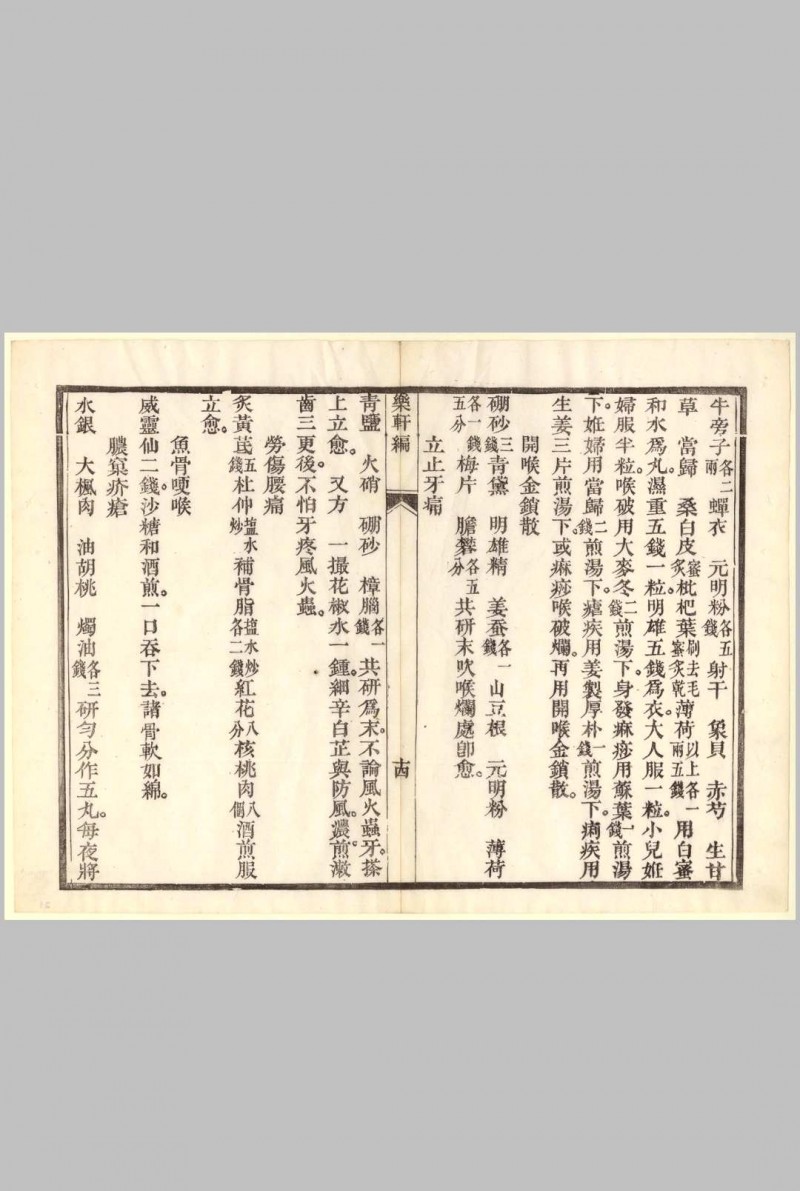 牛旁子各二兩蟬衣　元明粉各五錢射干　象貝　赤芍　生甘
草　當歸　桑白皮蜜炙枇杷葉刷去毛蜜炙乾薄荷以上各一兩五錢用白蜜
和水爲丸。濕重五錢一粒。明雄五錢爲衣。大人服一粒。小兒姙
婦服半粒。喉破用大麥冬二錢煎湯下。身發痳痧用蘇葉一錢煎湯
下。姙婦用當歸二錢煎湯下。瘧疾用姜製厚朴一錢煎湯下。痢疾用
生姜三片煎湯下。或痳痧喉破爛。再用開喉金鎖散。
開喉金鎖散
硼砂三錢青黛　明雄精　姜蚕各一錢山豆根　元明粉　薄荷
各一錢五分梅片　膽礬各五分共研末吹喉爛處卽愈。
立止牙痛
樂軒編
十四
青鹽　火硝　硼砂　樟腦各一錢共研爲末。不論風火蟲牙。搽
上立愈。　又方　一撮花椒水一鍾。細辛白芷與防風。濃煎漱
齒三更後。不怕牙疼風火蟲。
勞傷腰痛
炙黃芪五錢杜仲鹽水炒補骨脂鹽水炒各二錢紅花八分核桃肉八個酒煎服
立愈。
魚骨哽喉
威靈仙二錢。沙糖和酒煎。一口吞下去。諸骨軟如綿。
膿窠疥瘡
水銀　大楓肉　油胡桃　燭油各三錢研勻分作五丸。每夜將